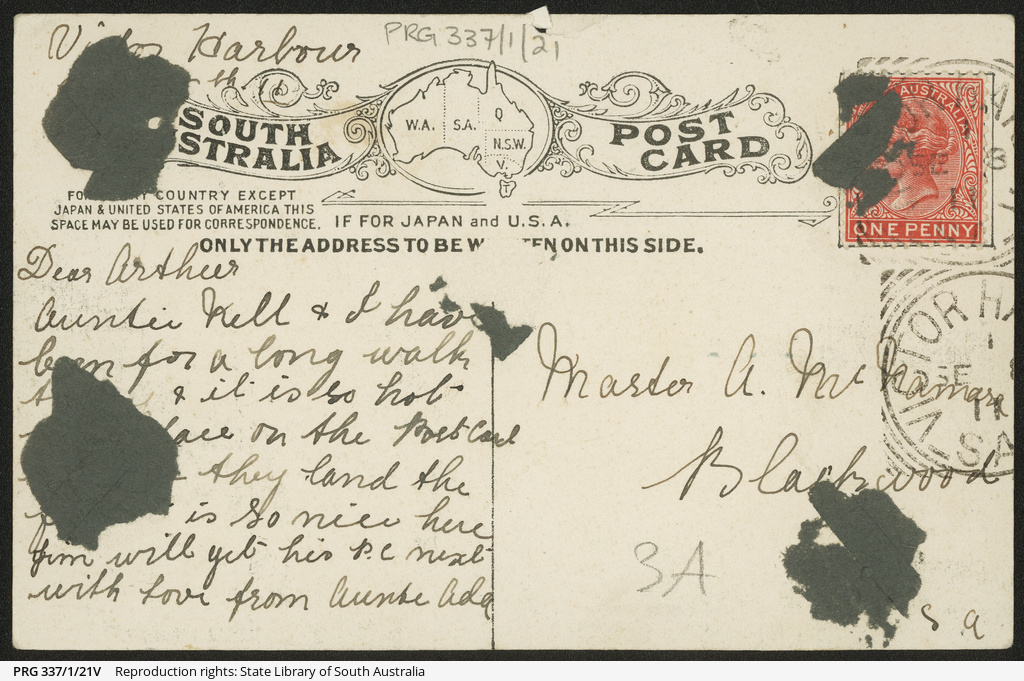 Victor Harbour
PRG 337/1/21
th 11
SOUTH
STRALIA
W.A. S.A. Q N.S.W. V T
POST
CARD
AUSTRALIA
ONE PENNY
COUNTRY EXCEPT
JAPAN & UNITED STATES OF AMERICA THIS
SPACE MAY BE USED FOR CORRESPONDENCE.
IF FOR JAPAN and U.S.A.
ONLY THE ADDRESS TO BE W TEN ON THIS SIDE.
Dear Arthur
Auntie Nell & I have
been for a long walk
& it is so hot
on the Post Card
they land the
is so nice here
Jim will get his P.C next
with love from Auntie Ada
Master A. McNamara
Blackwood
S A
3A
VICTOR HA
SE 8
11
SA
PRG 337/1/21V Reproduction rights: State Library of South Australia